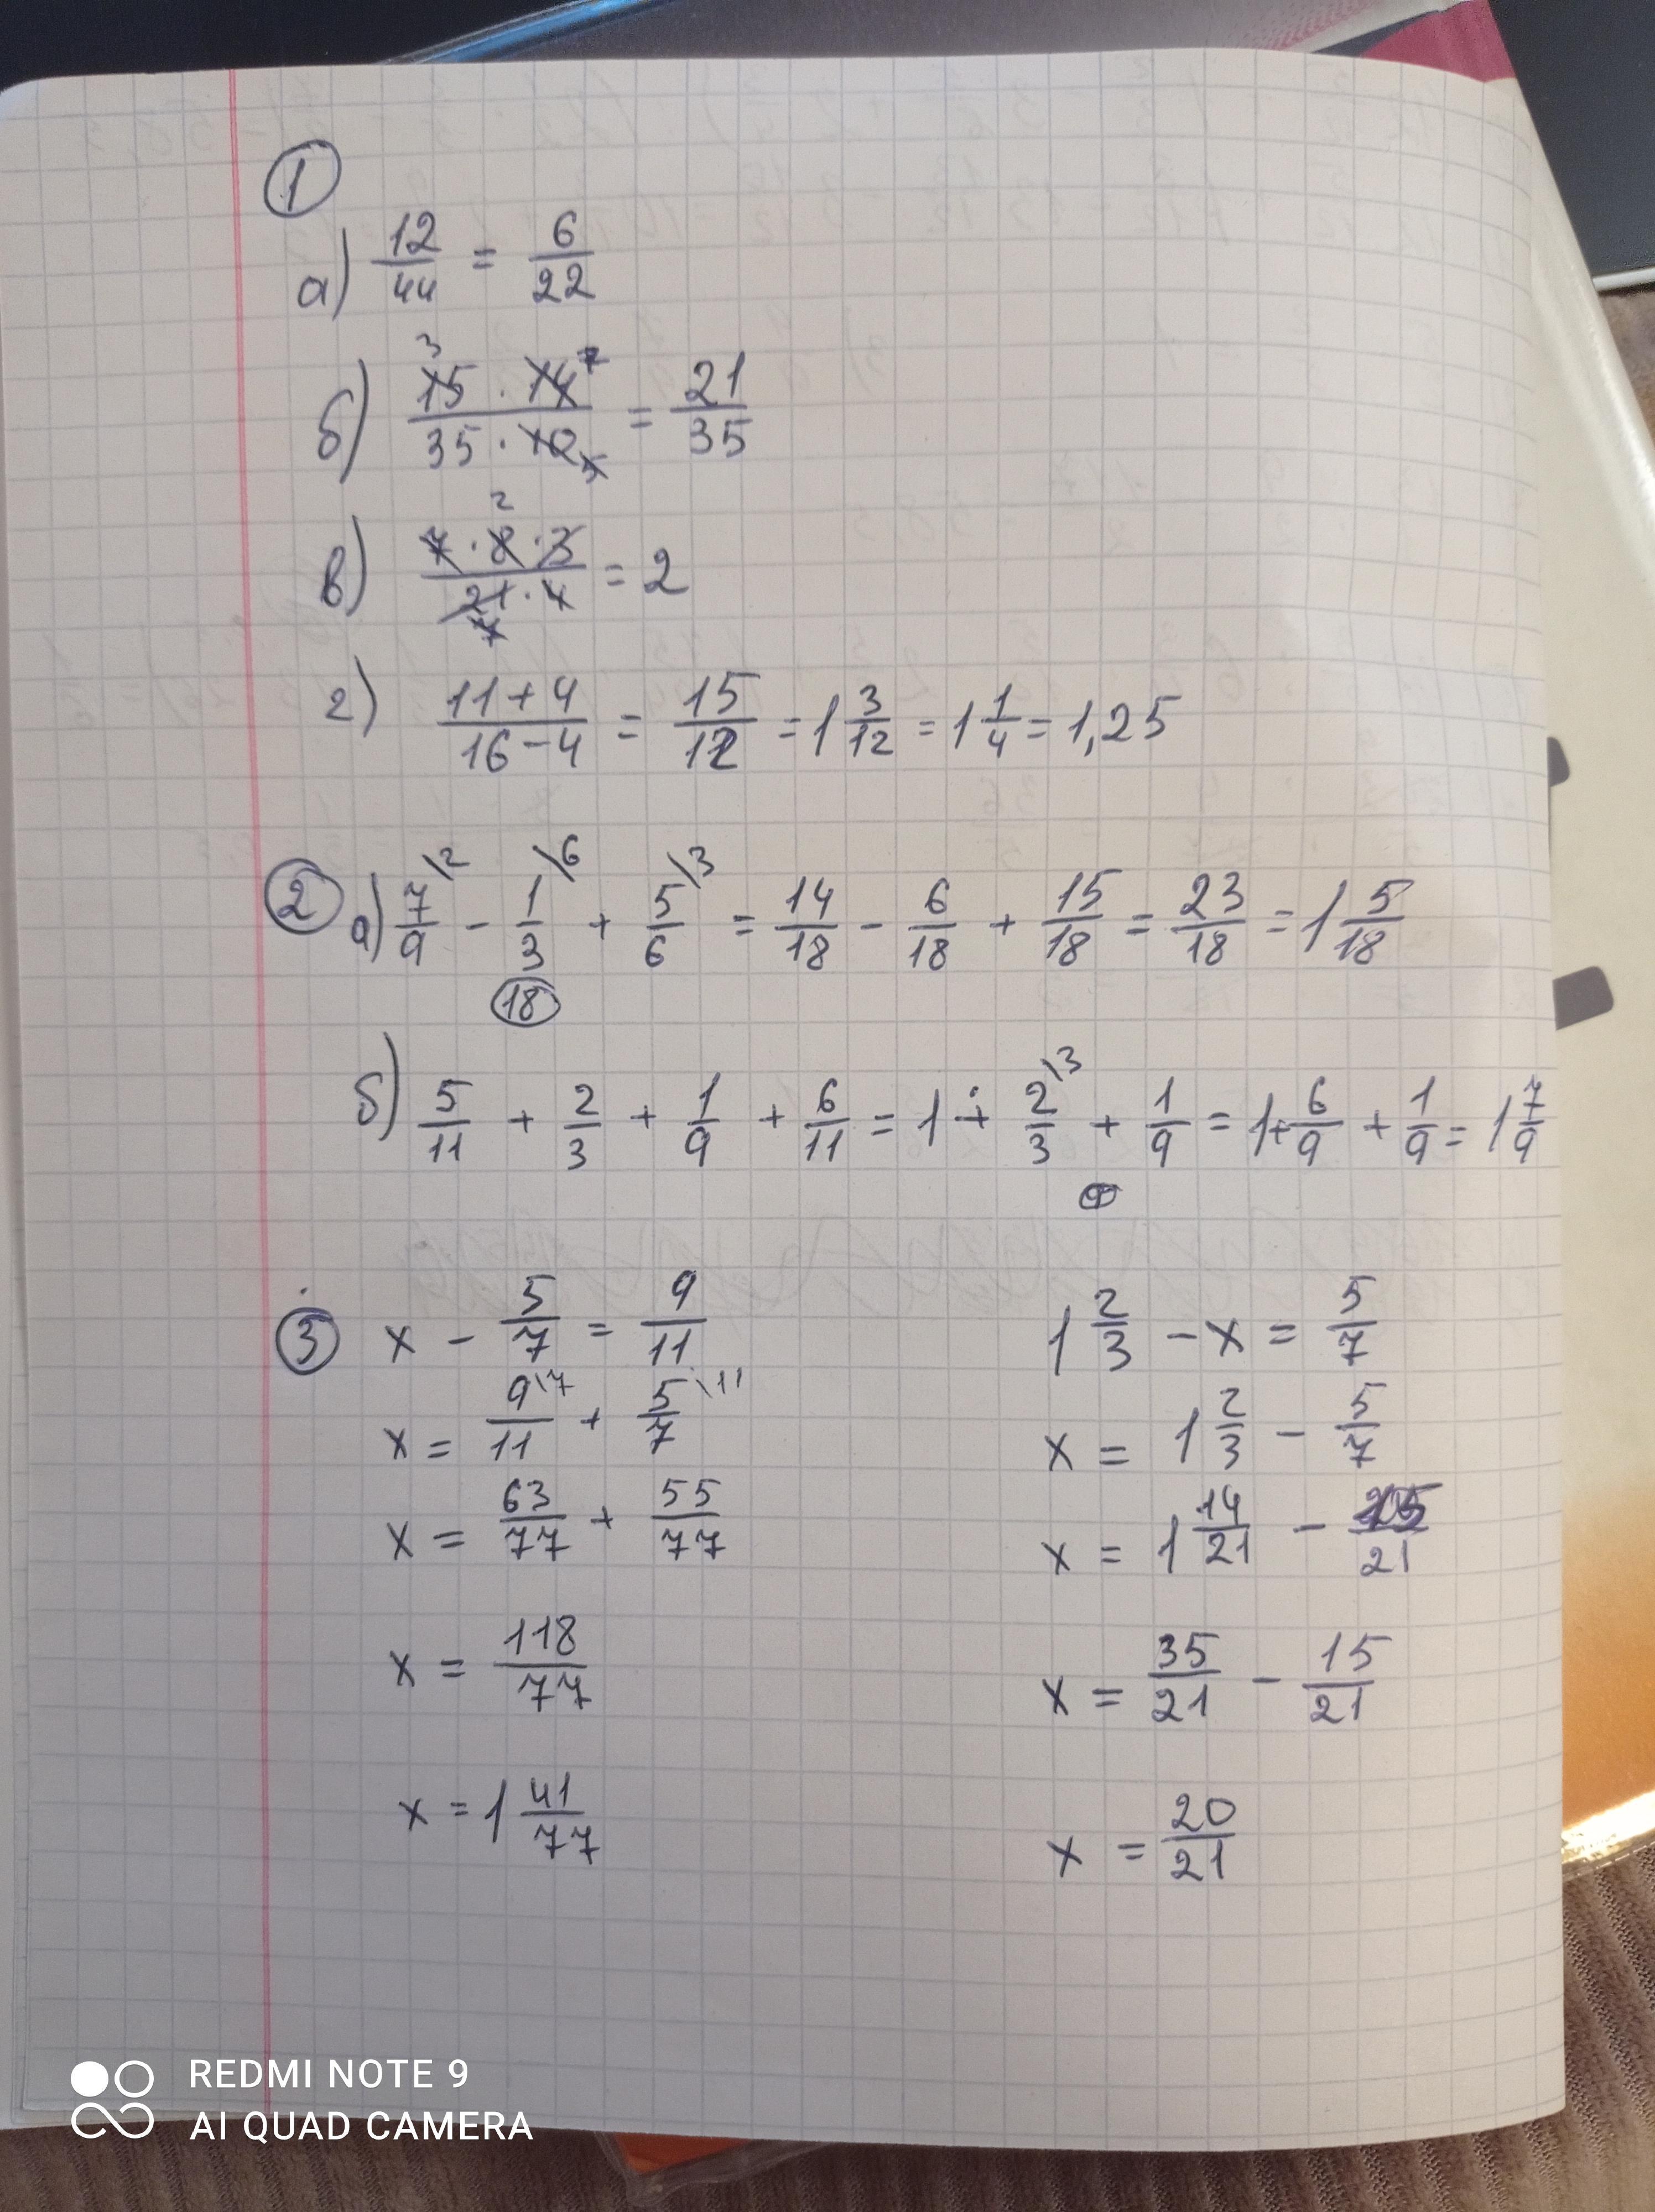 1
а) 12/44 = 6/22
б) 15 3 · 14 7 / 35 · 10 5 = 21/35
в) 7 · 8 2 · 3 / 21 7 · 4 = 2
г) 11+4 / 16-4 = 15/12 = 1 3/12 = 1 1/4 = 1,25
2 а) 7/9 \2 - 1/3 \6 + 5/6 \3 = 14/18 - 6/18 + 15/18 = 23/18 = 1 5/18
18
б) 5/11 + 2/3 + 1/9 + 6/11 = 1 + 2/3 \3 + 1/9 = 1 + 6/9 + 1/9 = 1 7/9
3 x - 5/7 = 9/11
x = 9/11 \7 + 5/7 \11
x = 63/77 + 55/77
x = 118/77
x = 1 41/77
1 2/3 - x = 5/7
x = 1 2/3 - 5/7
x = 1 14/21 - 15/21
x = 35/21 - 15/21
x = 20/21
REDMI NOTE 9
AI QUAD CAMERA